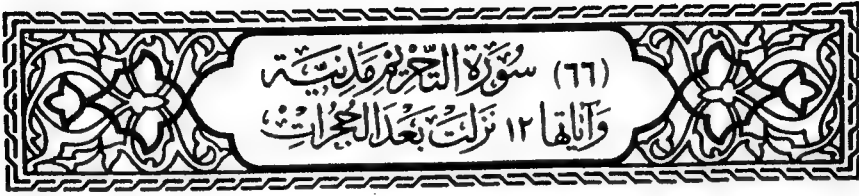 (٦٦) سُورَةُ التَّحْرِيمِ مَدَنِيَّة
وَآيَاتُهَا ١٢ نَزَلَتْ بَعْدَ الحُجُرَاتِ